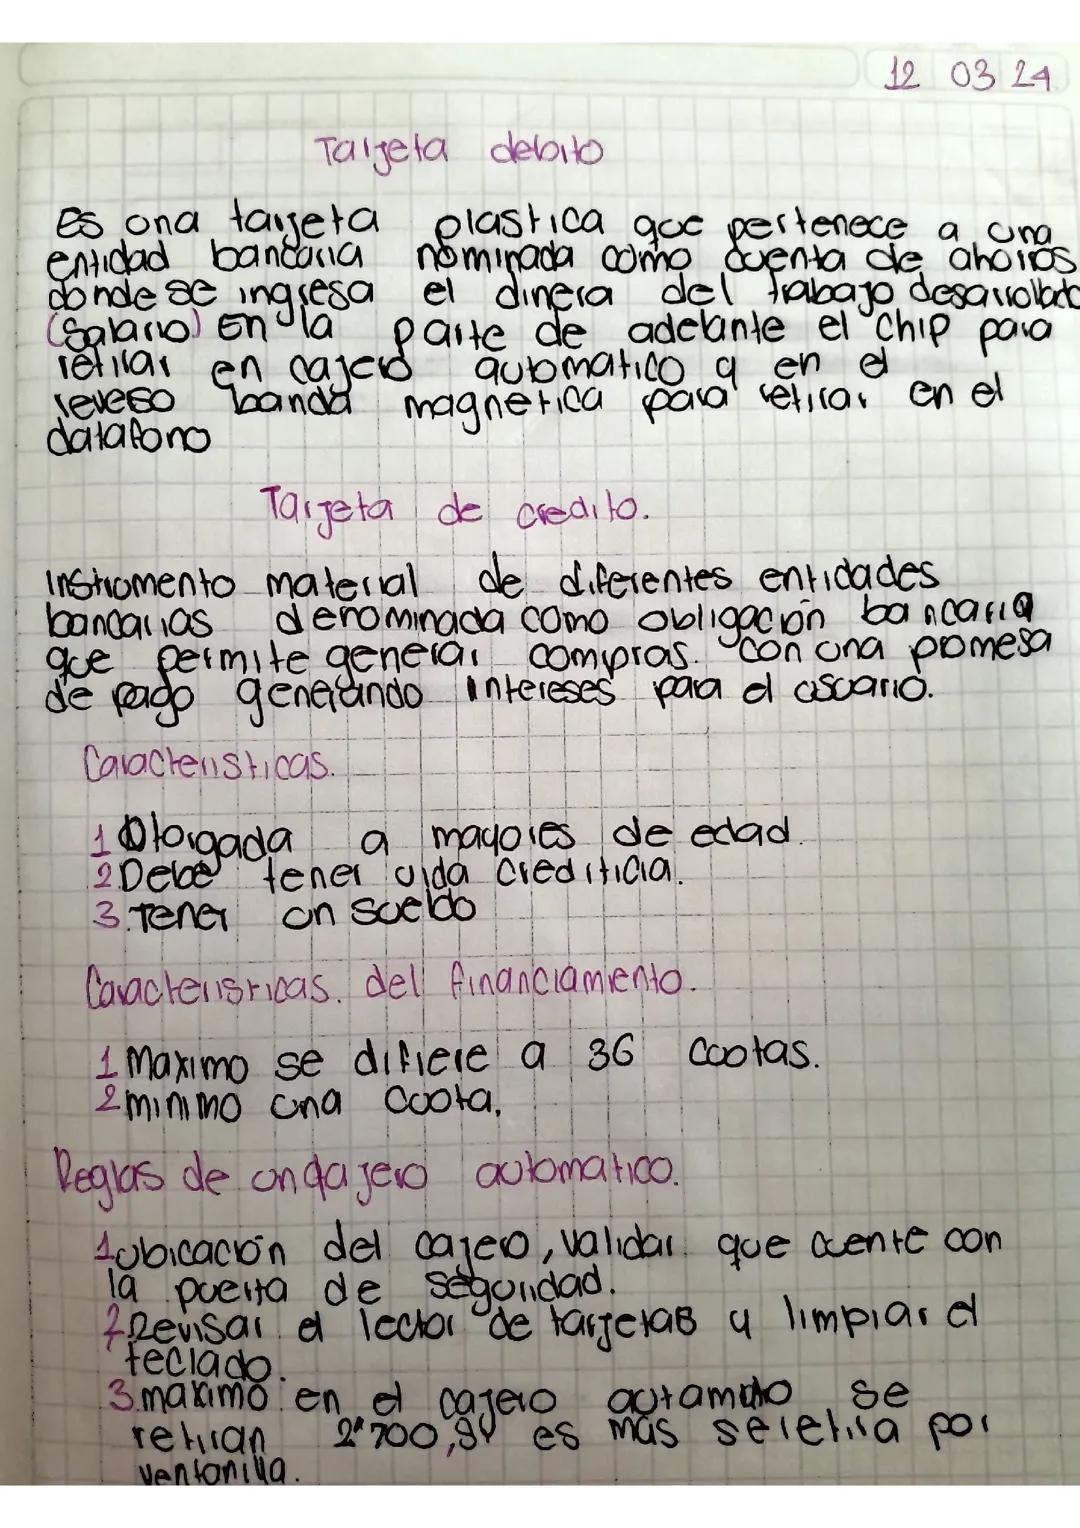 12 03 24
Tarjeta debito
Es una tarjeta plastica que pertenece a una
entidad bancaria nominada como cuenta de ahorros
donde se ingresa el dinero del trabajo desarrollado
(Salario) En la parte de adelante el chip para
retirar en cajero automatico y en el
reveso banda magnetica para retirar en el
datafono
Tarjeta de credito.
Instrumento material de diferentes entidades
bancarias denominada como obligación bancaria
que permite generar compras. con una promesa
de pago generando intereses para el usuario.
Caracteristicas.
1 Otorgada a mayores de edad.
2 Debe tener vida crediticia.
3. Tener un sueldo
Caracteristicas. del financiamiento.
1 Maximo se difiere a 36 cuotas.
2 minimo una cuota.
Reglas de un cajero automatico.
1 ubicación del cajero, validar que cuente con
la puerta de seguridad.
2 Revisar el lector de tarjetas y limpiar el
teclado.
3. maximo en el cajero se
retiran 2'700, es mas se retira por
ventanilla.